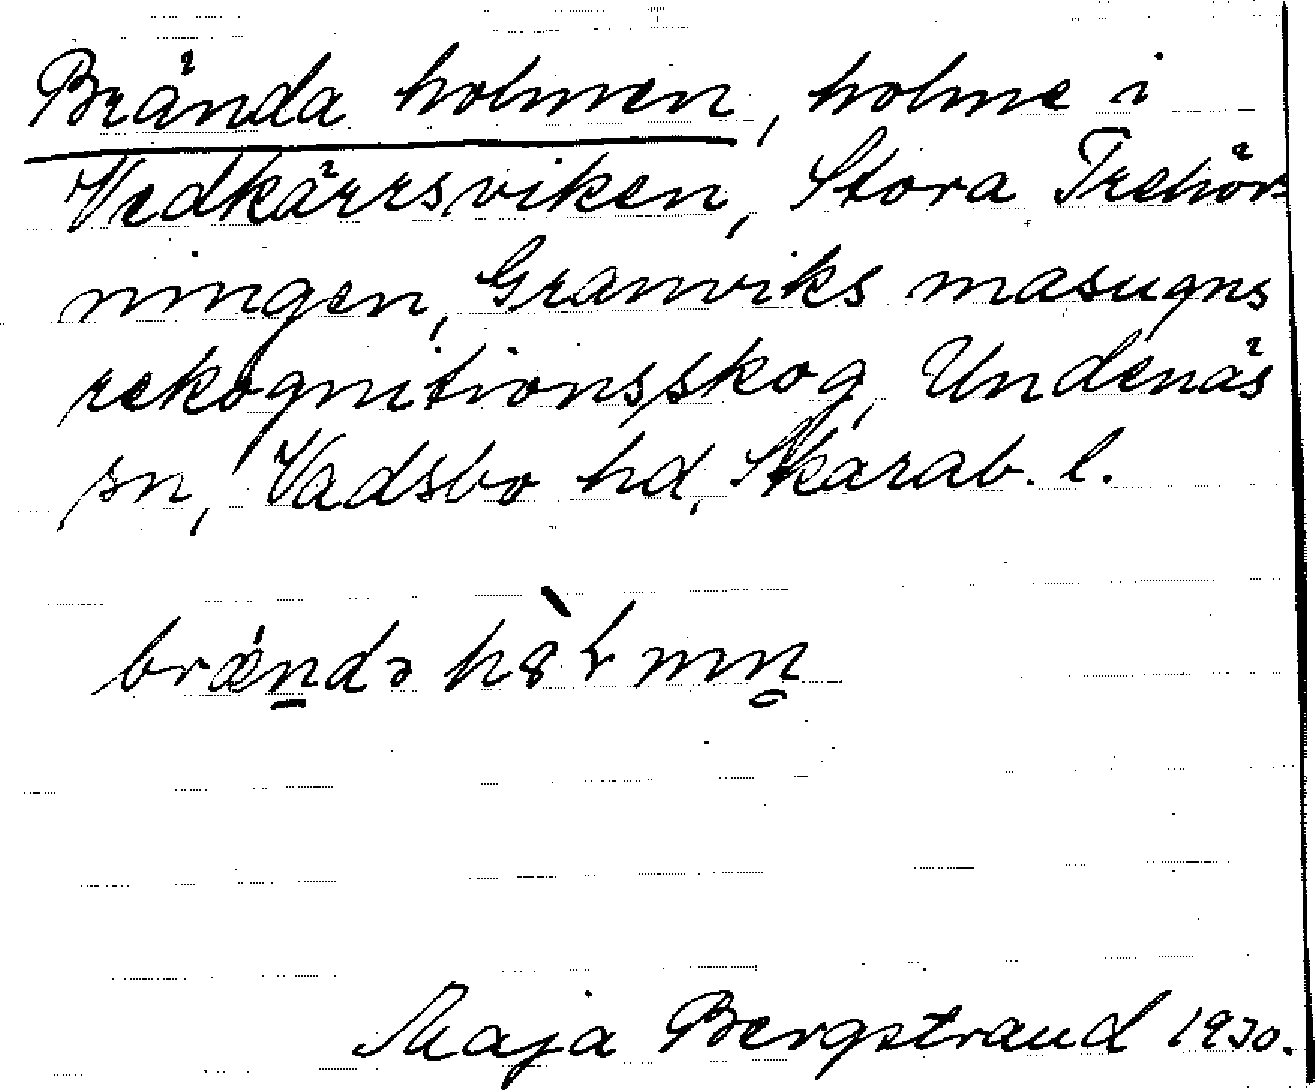 Brända holmen, holme i
Vedkärrsviken, Stora Trehör-
ningen, Granviks masugns
rekognitionsskog, Undenäs
sn, Vadsbo hd, Skarab. l.
Maja Bergstrand 1930.